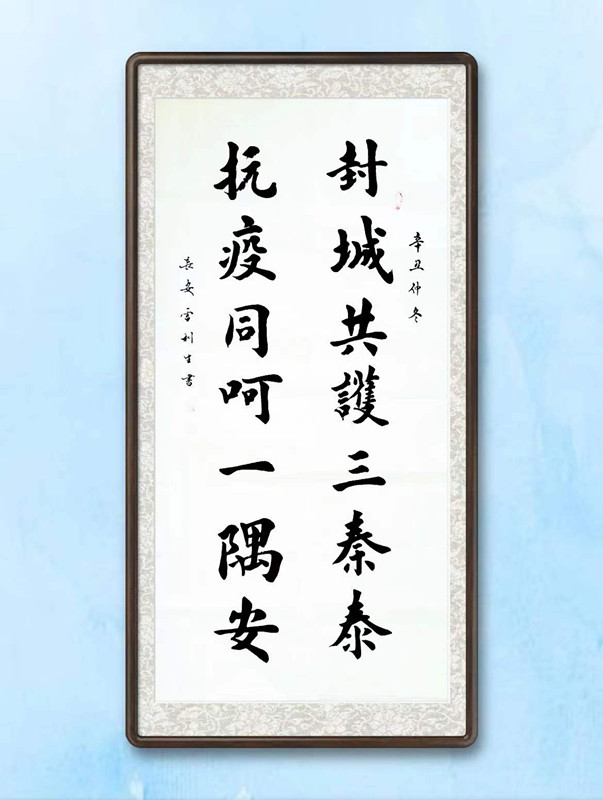 辛丑仲冬
封城共護三秦泰
抗疫同呵一隅安
長安雪利生書